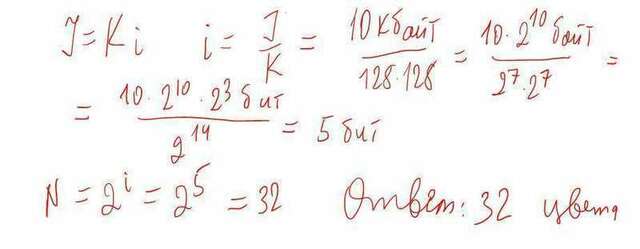 J = K i   i = J/K = 10 Кбайт/128·128 = 10·2¹⁰ байт/2⁷·2⁷ =
= 10·2¹⁰·2³ бит/2¹⁴ = 5 бит
N = 2ⁱ = 2⁵ = 32   Ответ: 32 цвета